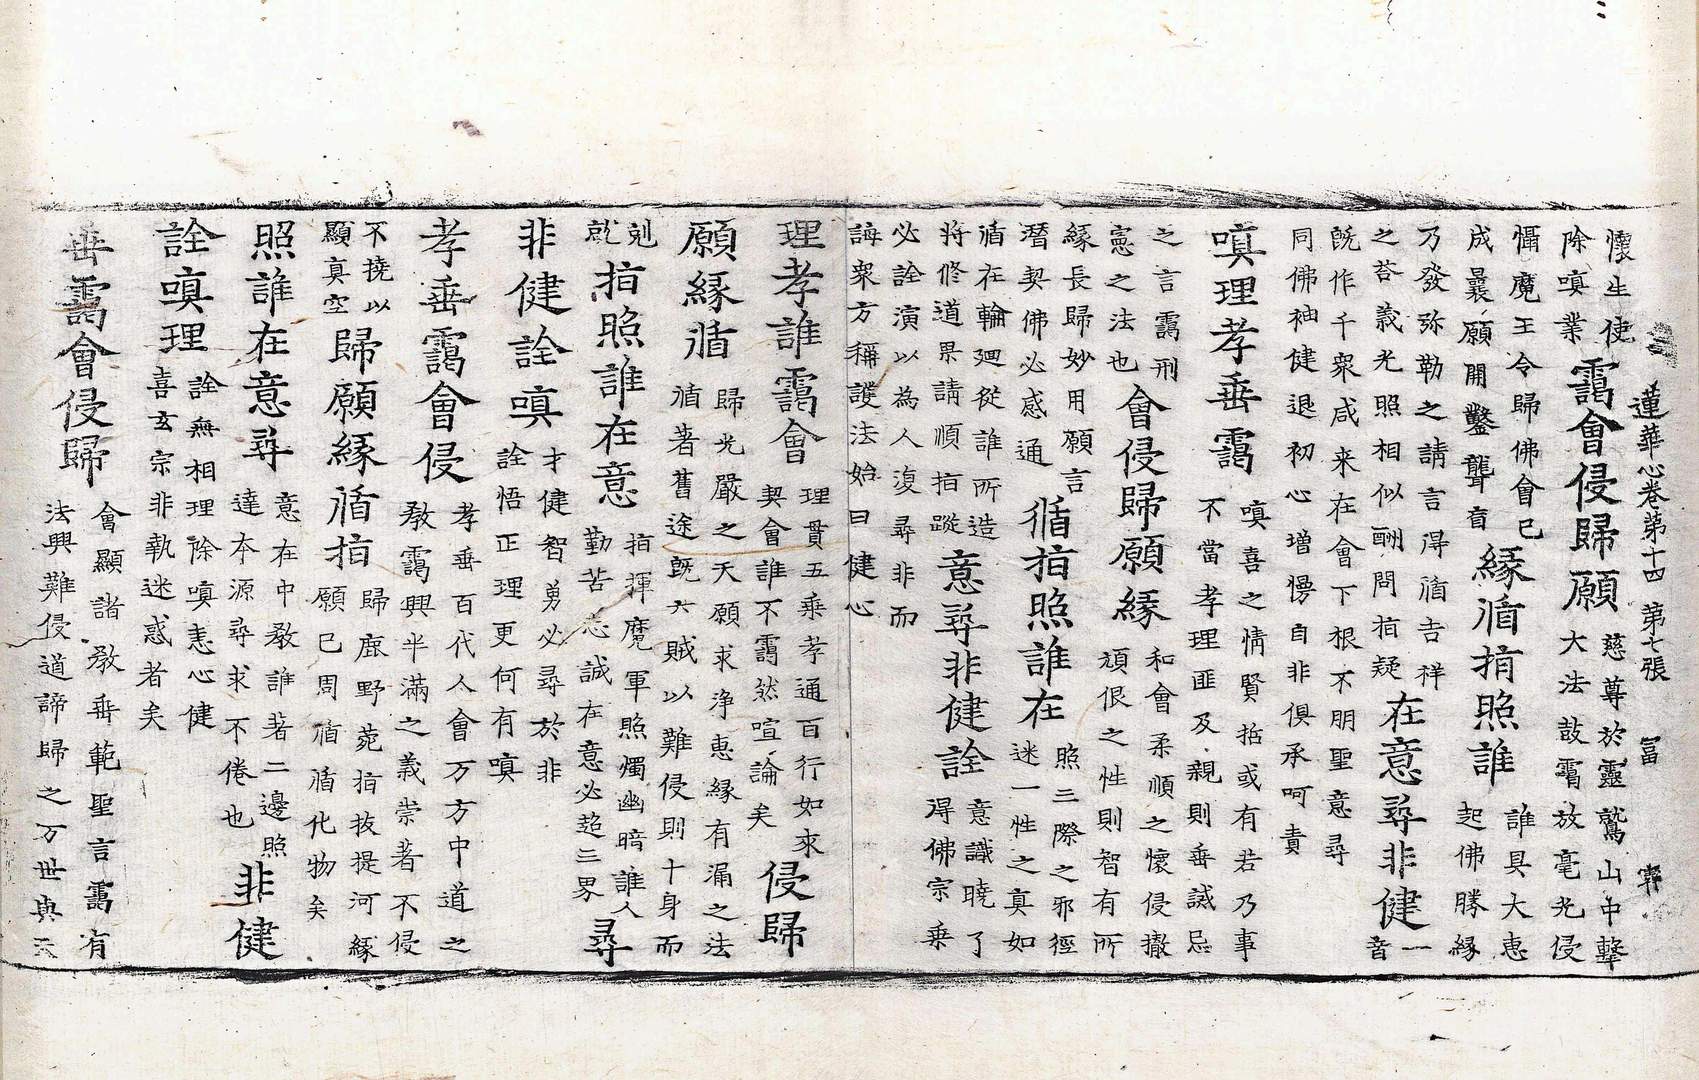 蓮華心卷第十四 第七張 冨
懷生使
除嗔業
靄會侵歸願
慈尊於靈鷲山中擊
大法鼓霄放毫光侵
懾魔王令歸佛會已
成曩願開鑿聾盲
緣循指照誰
誰具大惠
起佛勝緣
乃發弥勒之請言得循吉祥
之荅義光照相似酬問指疑
在意尋非健
一
音
既作千衆咸来在會下根不朋聖意尋
同佛袖健退初心增慢自非俱承呵責
嗔理孝垂靄
嗔喜之情賢括或有若乃事
不當孝理匪及親則垂誡忌
之言靄刑
憲之法也
會侵歸願緣
和會柔順之懷侵撤
頑佷之性則智有所
緣長歸妙用願言
潛契佛必感通
循指照誰在
照三際之邪徑
迷一性之真如
循在輪廻從誰所造
將修道果請順指蹤
意尋非健詮
意識曉了
得佛宗乘
必詮演以為人復尋非而
誨衆方稱護法始曰健心
理孝誰靄會
理貫五乘孝通百行如求
契會誰不靄然喧論矣
侵歸
願緣循
歸光嚴之天願求淨惠緣有漏之法
循著舊途既六賊以難侵則十身而
剋
就
指照誰在意
指揮魔軍照燭幽暗誰人
勤苦志誠在意必超三界
尋
非健詮嗔
才健智勇必尋於非
詮悟正理更何有嗔
孝垂靄會侵
孝垂百代人會万方中道之
教靄興半滿之義崇著不侵
不撓以
顯真空
歸願緣循指
歸鹿野苑指拔提河緣
願已周循循化物矣
照誰在意尋
意在中教誰著二邊照
達本源尋求不倦也
非健
詮嗔理
詮無相理除嗔恚心健
喜玄宗非執迷惑者矣
垂靄會侵歸
會顯諸教垂範聖言靄有
法興難侵道諦歸之万世與天